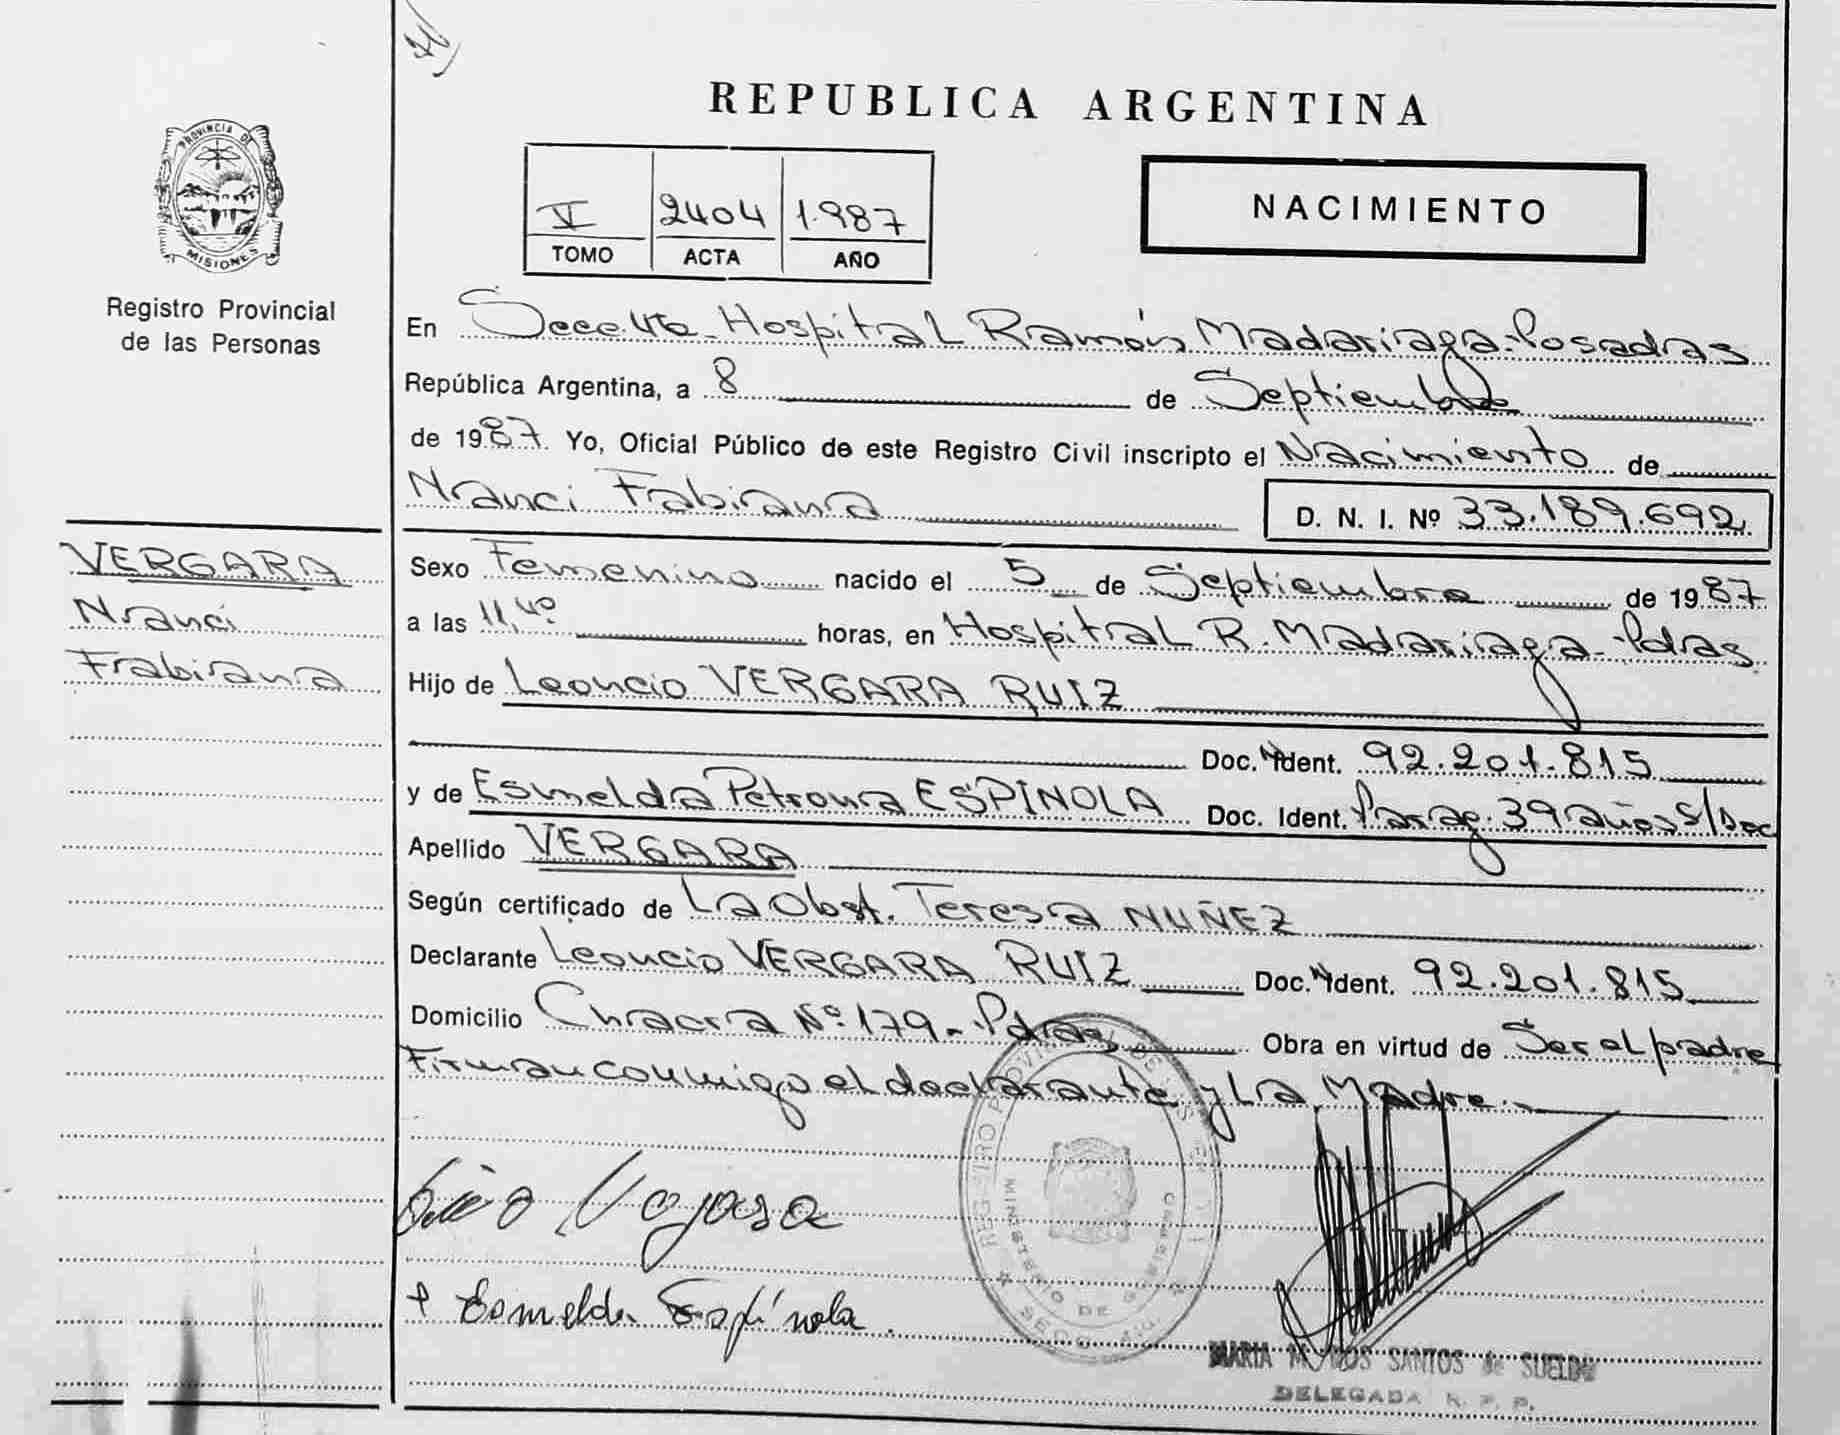 REPUBLICA ARGENTINA
PROVINCIA DE
MISIONES
Registro Provincial
de las Personas
V 2404 1.987
TOMO ACTA AÑO
NACIMIENTO
En Secc. 4ta - Hospital Ramón Madariaga - Posadas
República Argentina, a 8 de Septiembre
de 1987. Yo, Oficial Público de este Registro Civil inscripto el Nacimiento de
Nanci Fabiana
D. N. I. Nº 33.189.692
VERGARA
Nanci
Fabiana
Sexo Femenino nacido el 5 de Septiembre de 1987
a las 11,40 horas, en Hospital R. Madariaga - Pdas
Hijo de Leoncio VERGARA RUIZ
Doc. Ident. 92.201.815
y de Esmelda Petrona ESPINOLA Doc. Ident. Parag. 39 años S/Doc
Apellido VERGARA
Según certificado de La Obst. Teresa NUÑEZ
Declarante Leoncio VERGARA RUIZ Doc. Ident. 92.201.815
Domicilio Chacra Nº 179 - Pdas Obra en virtud de Ser el padre
Firman conmigo el declarante y La Madre.
Esmelda Espínola
MARIA M. DOS SANTOS de SUELDO
DELEGADA R. P. P.